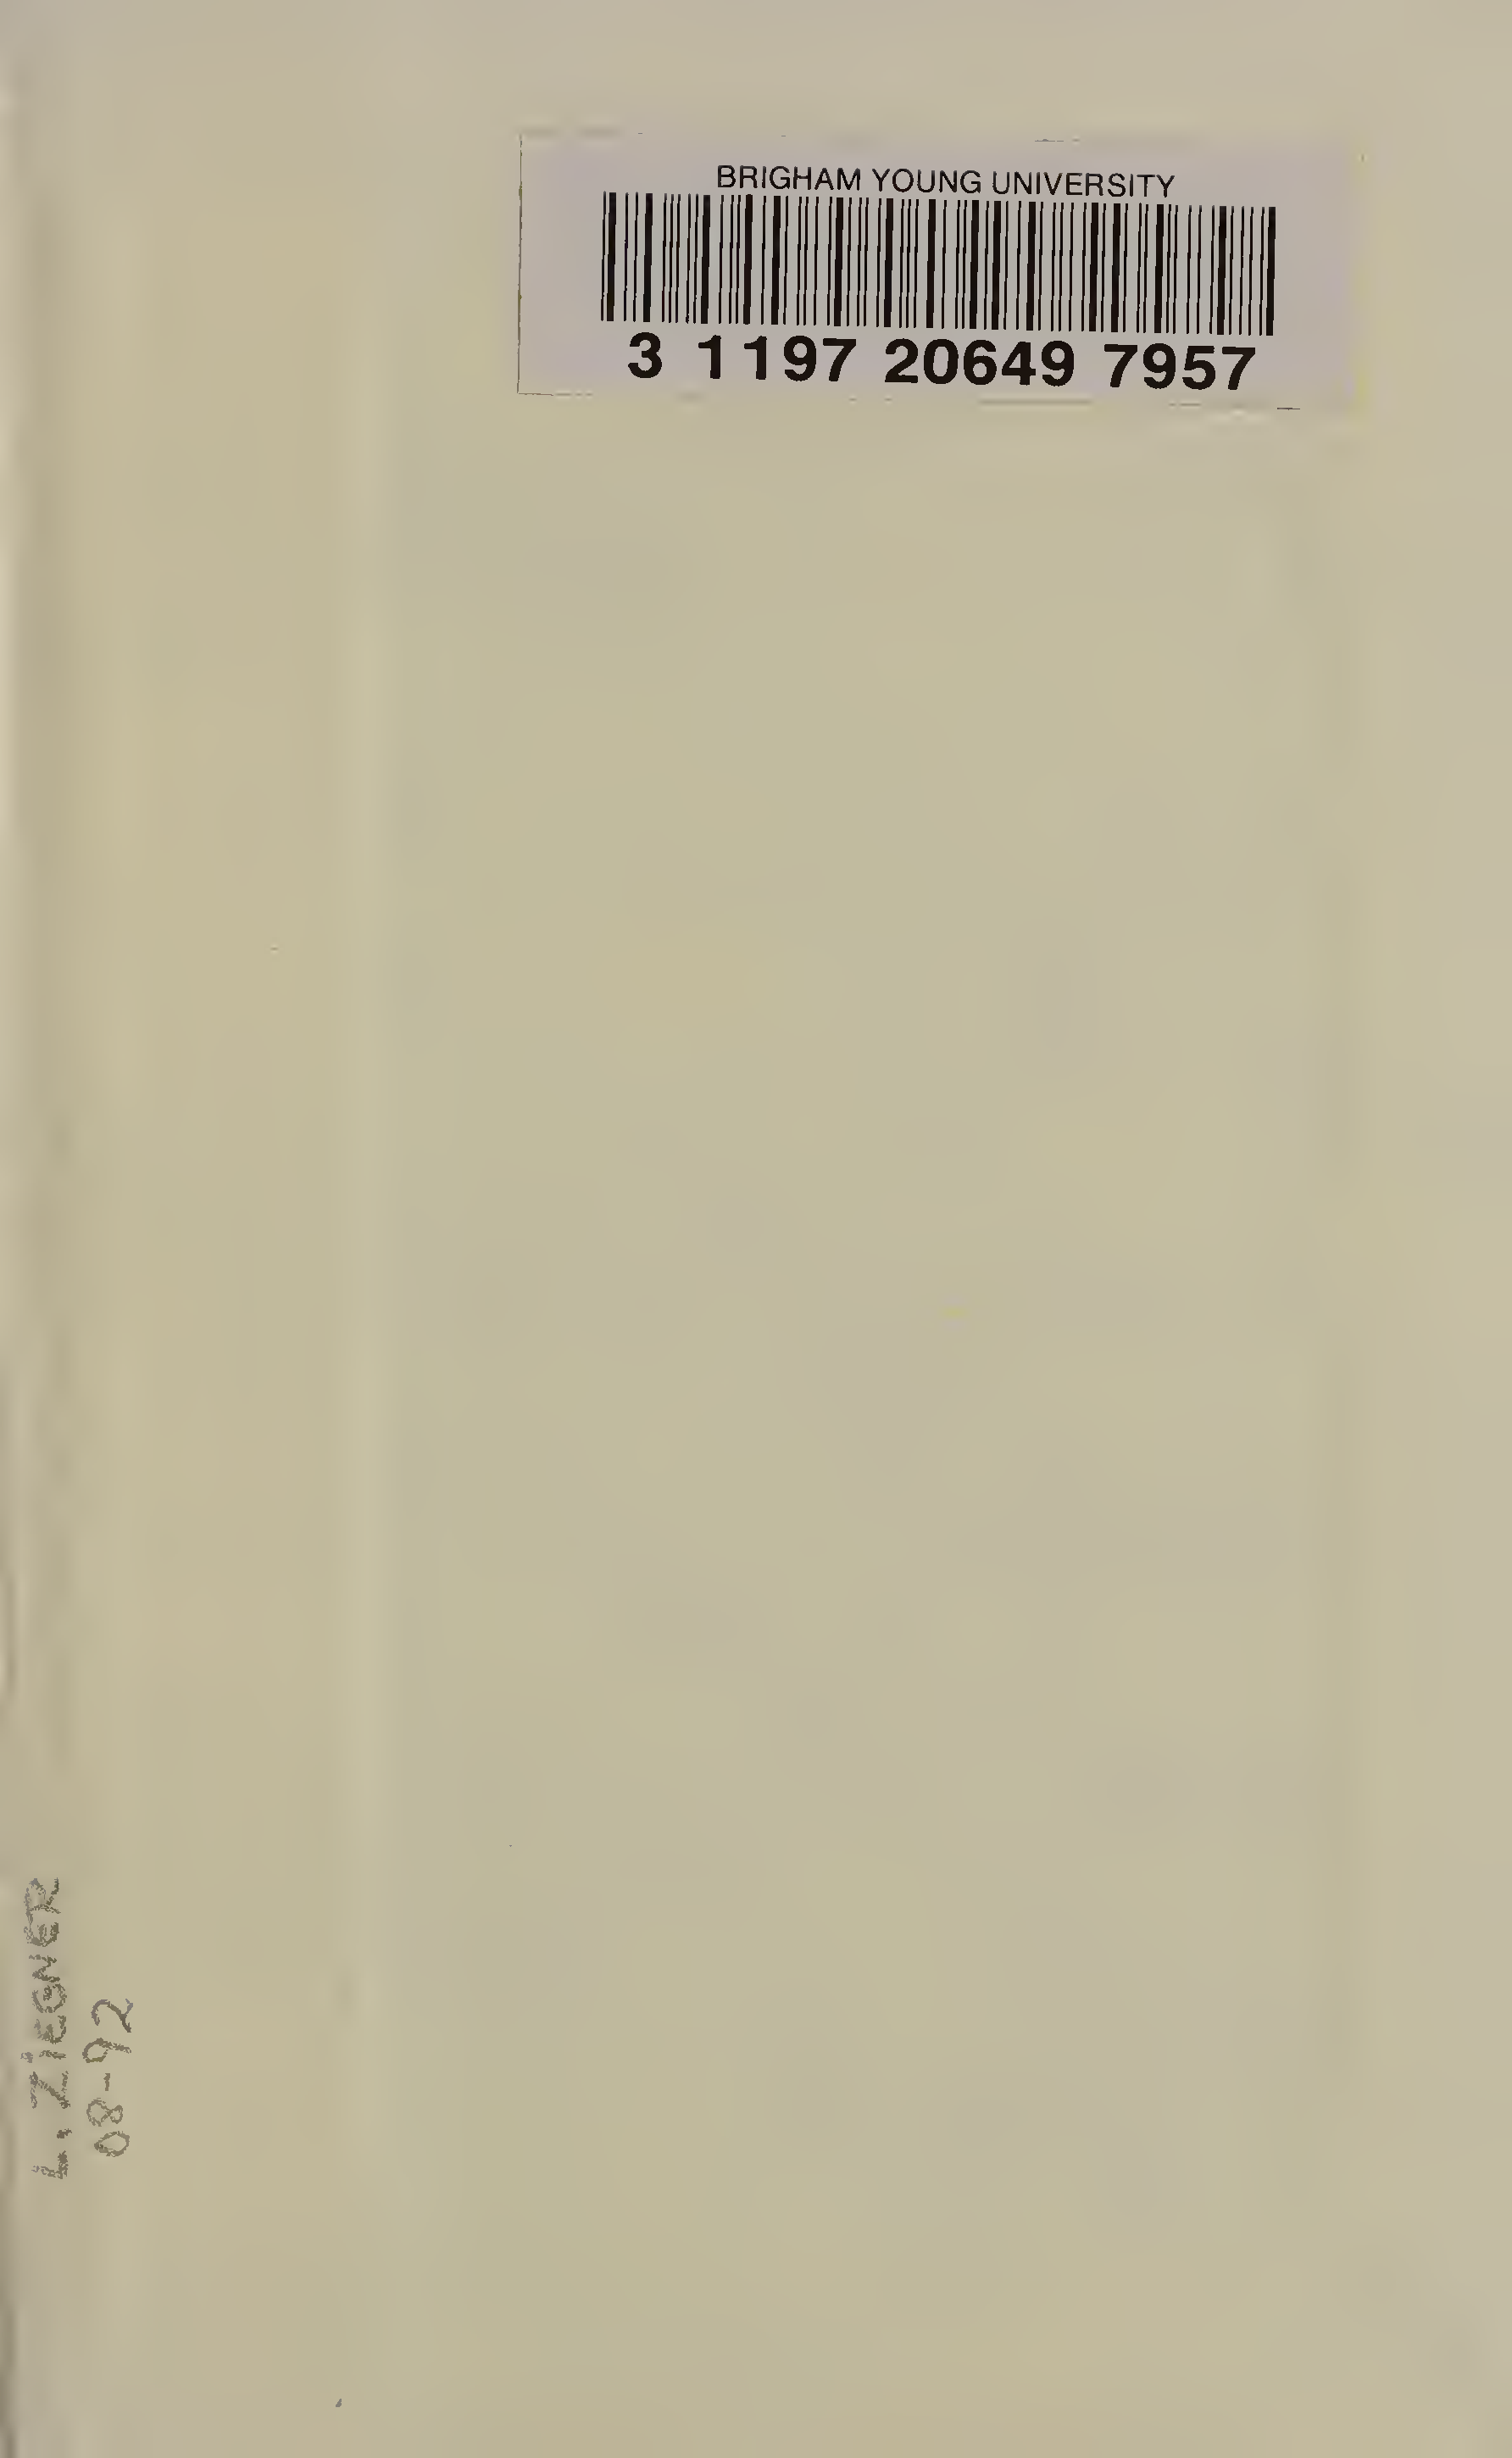 BRIGHAM YOUNG UNIVERSITY
3 1197 20649 7957
L. ZIEGNER
08-92